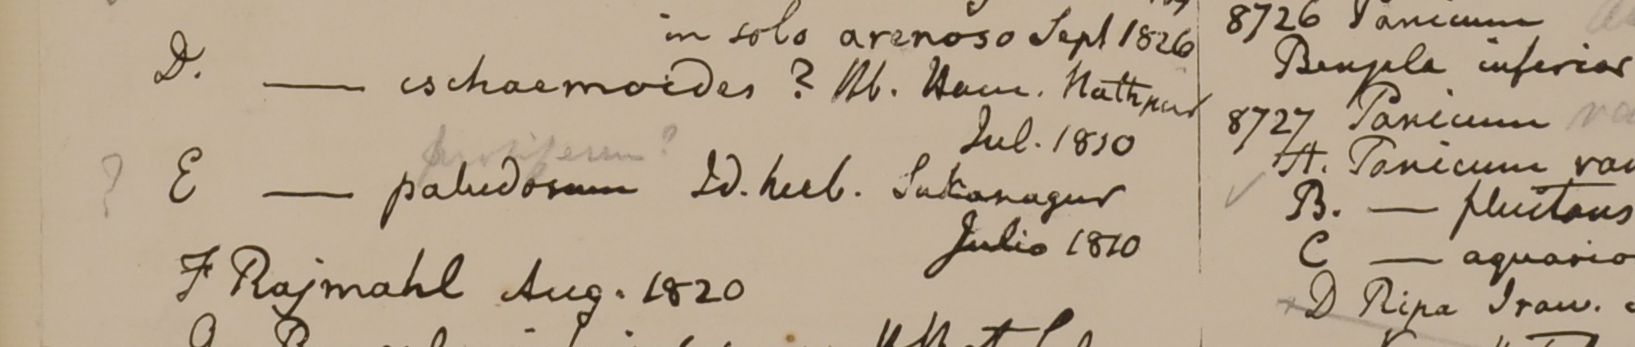 in solo arenoso Sept 1826
D. — ischaemoides? Hb. Ham. Nathpur
Jul. 1810
proliferum?
? E — paludosum Id. herb. Sukanagur
Julio 1810
F Rajmahl Aug. 1820
8726 Panicum
Bengala inferior
8727 Panicum
A. Panicum
B. — fluitans
C —
D Ripa Iraw.